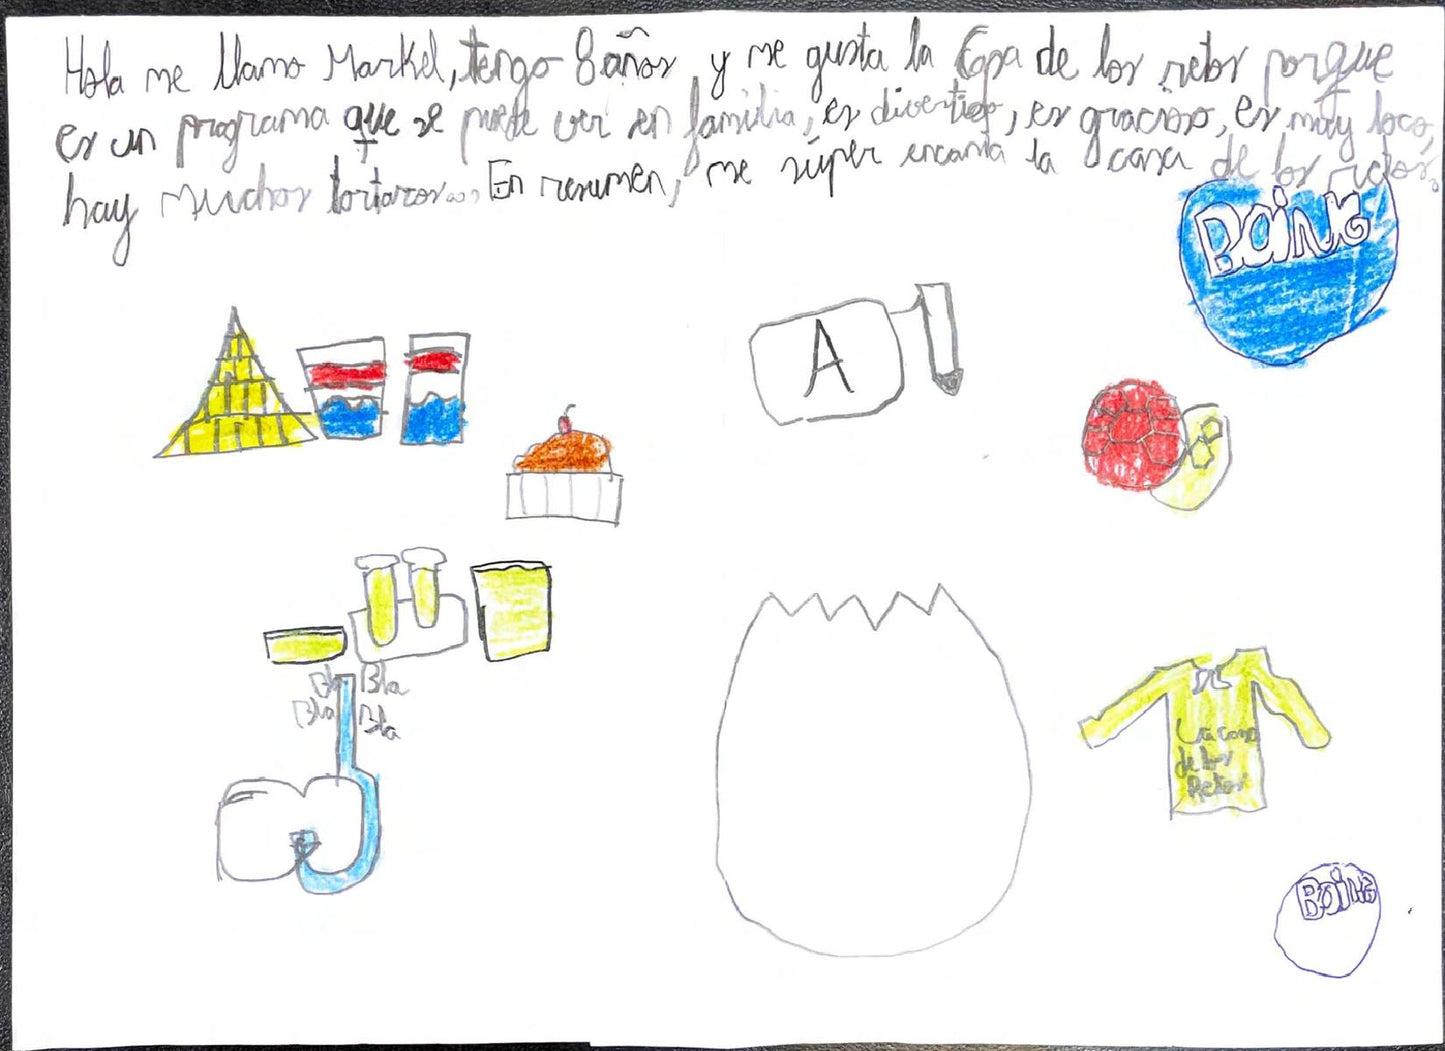 Hola me llamo Markel, tengo 8 años y me gusta la Casa de los retos porque
es un programa que se puede ver en familia, es divertido, es gracioso, es muy loco,
hay muchos tortazos... En resumen, me súper encanta la casa de los retos.
Boing
A
Bla Bla
Bla Bla
La casa
de los
Retos
Boing